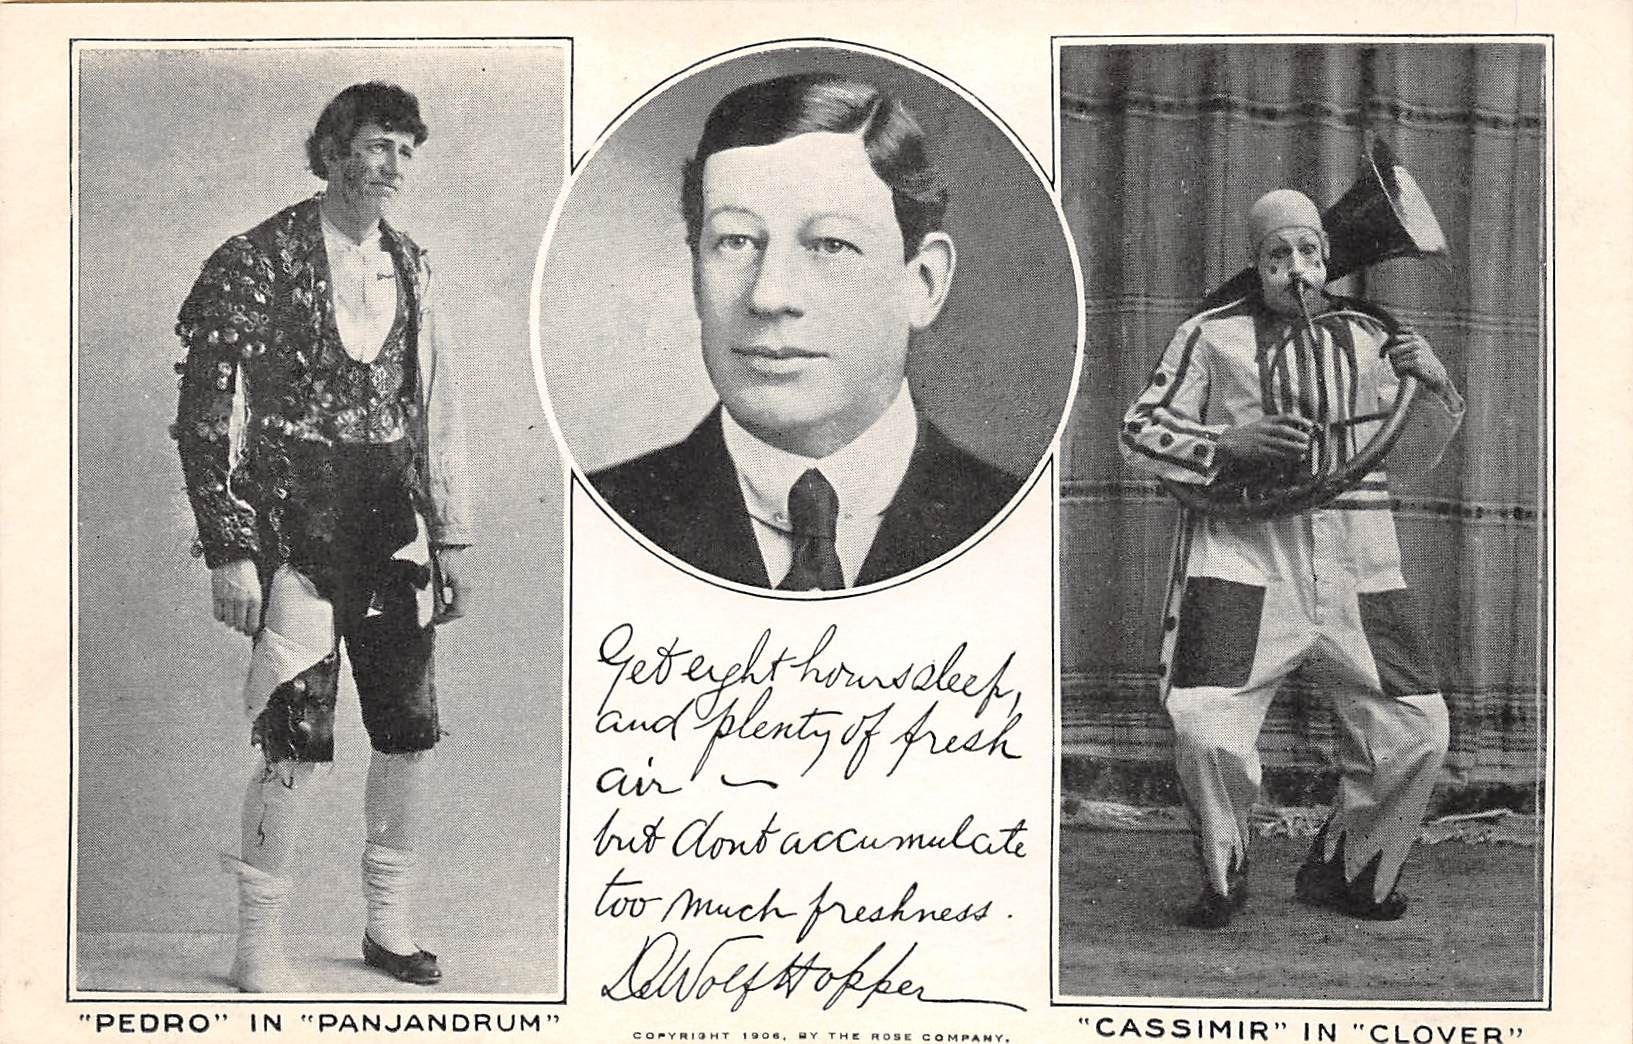 Get eight hours sleep,
and plenty of fresh
air –
but dont accumulate
too much freshness.
DeWolf Hopper
"PEDRO" IN "PANJANDRUM"
COPYRIGHT 1906, BY THE ROSE COMPANY.
"CASSIMIR" IN "CLOVER"